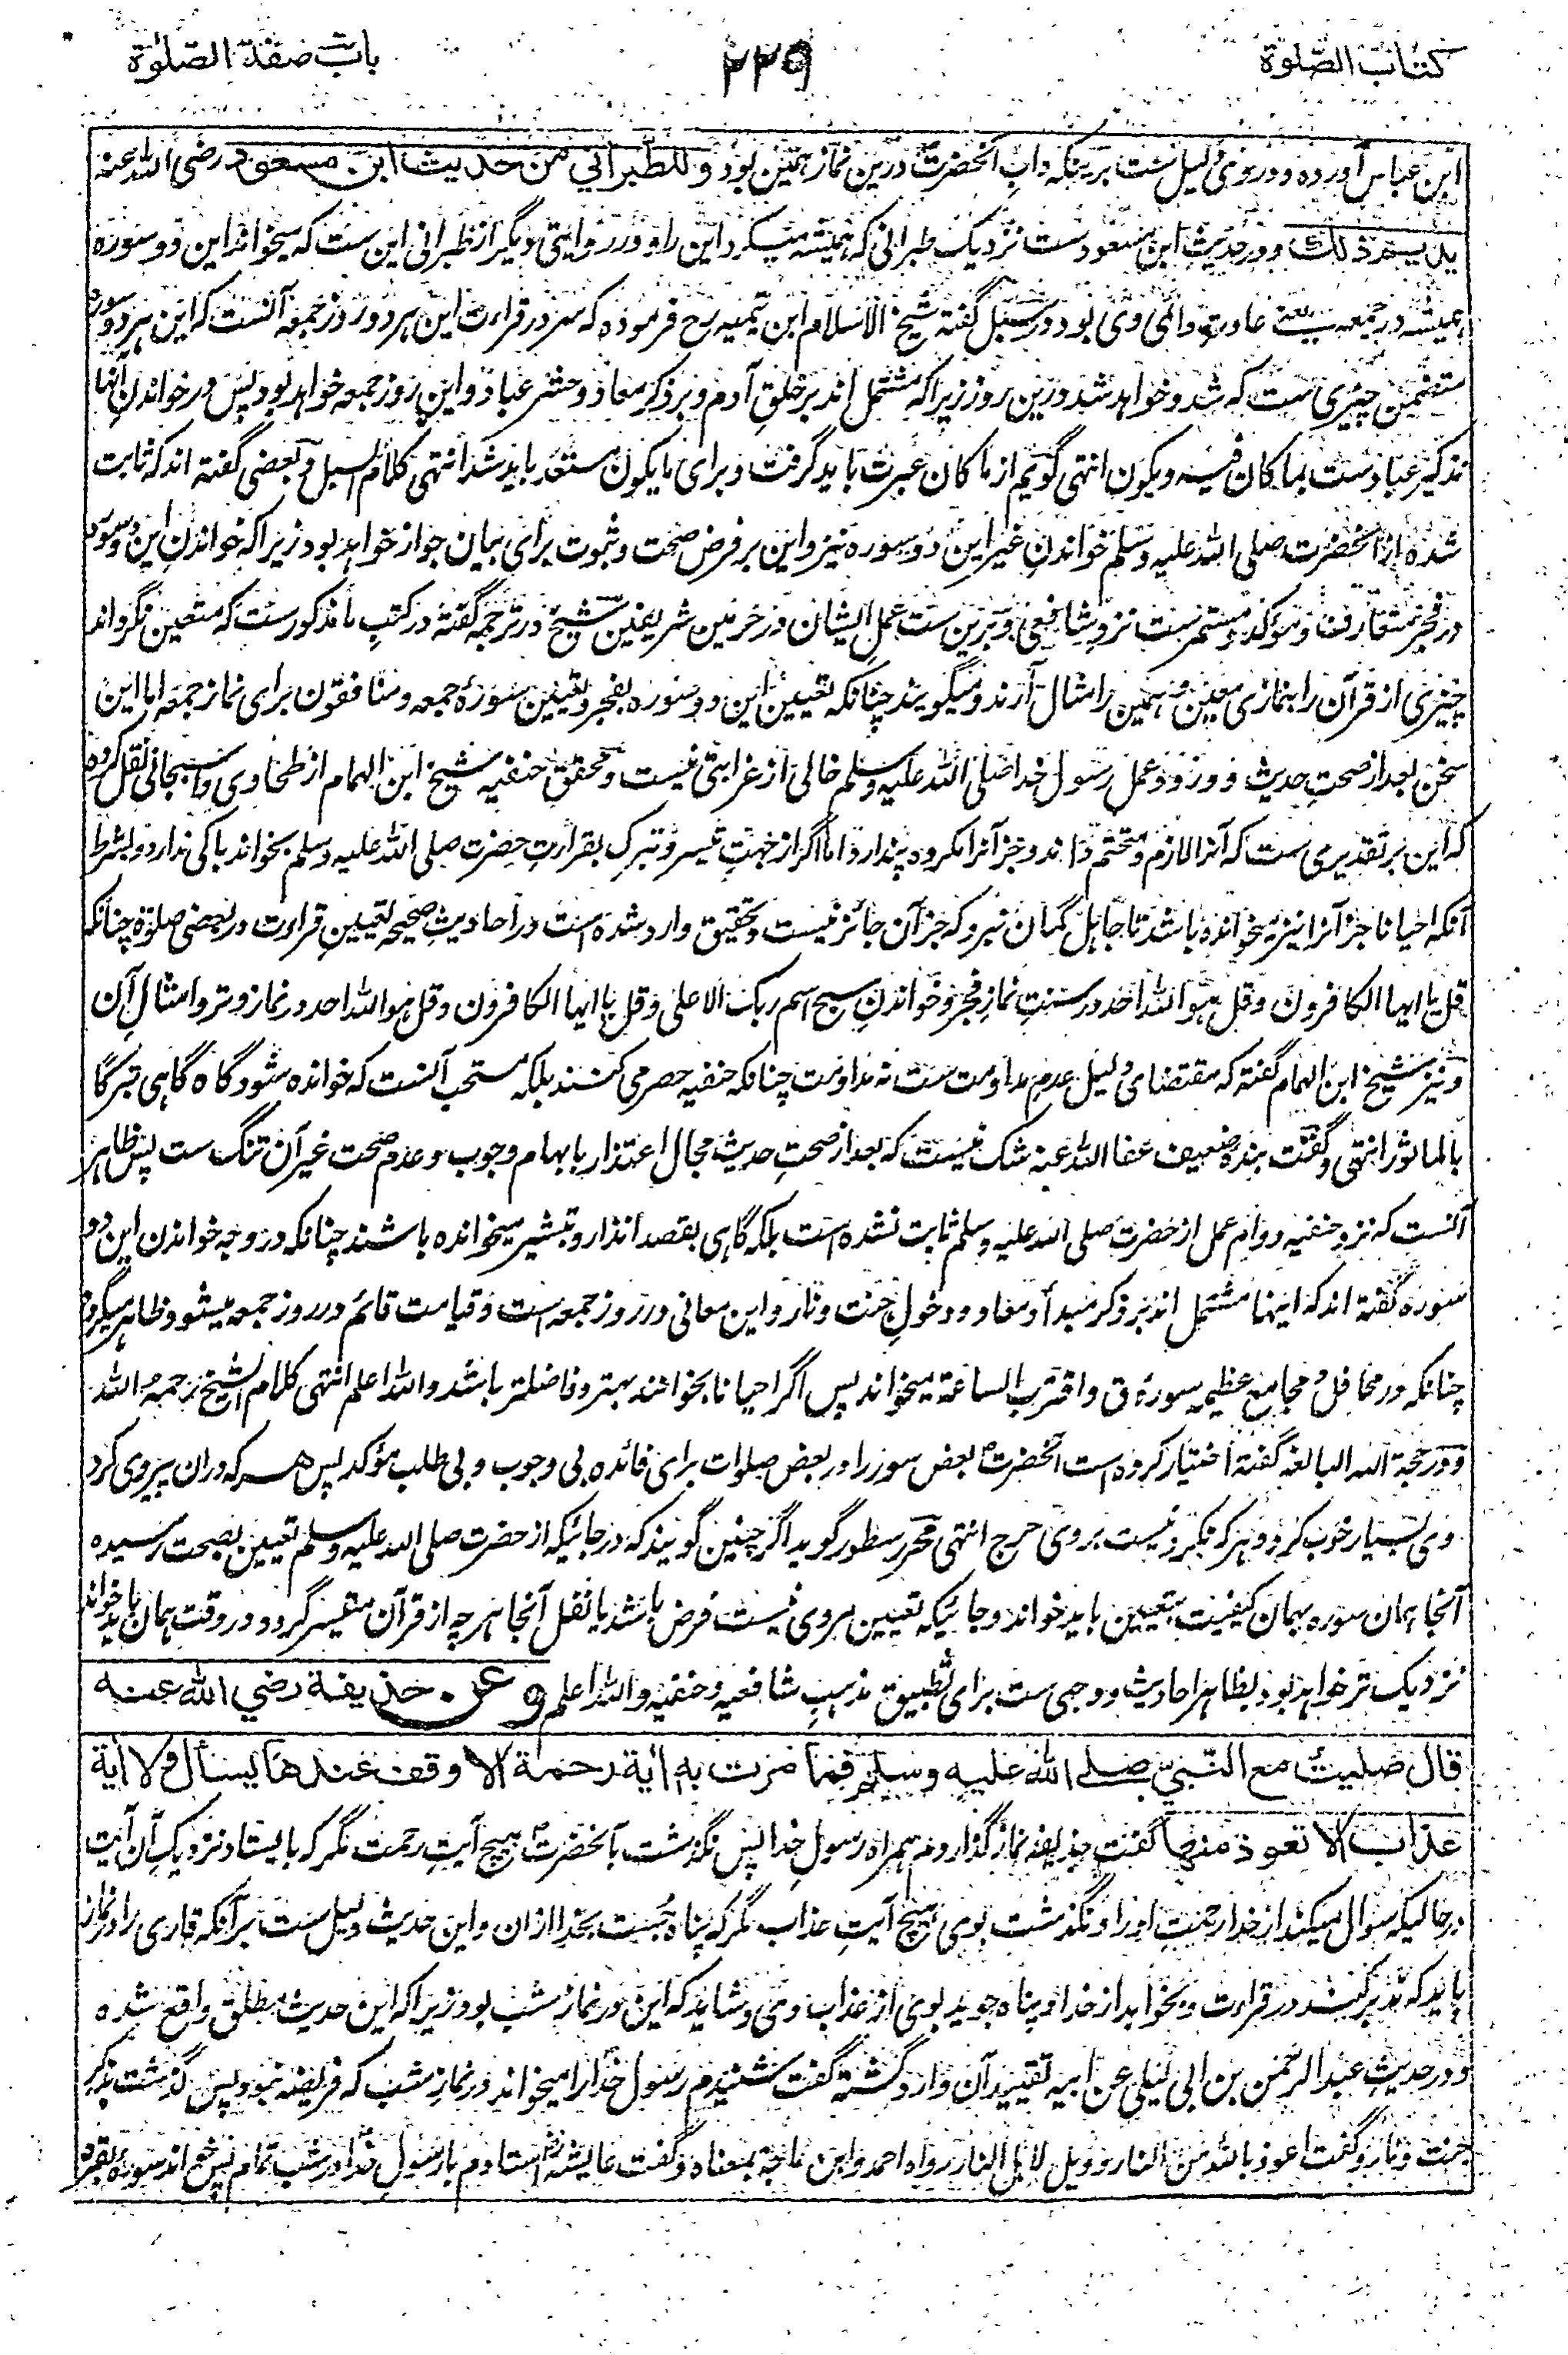 کتاب الصلوة
۲۲۹
باب صفة الصلوة
ابن عباس آورده و در وی دلیل ست بر ینکه داب آنحضرت درین نماز همین بود وللطبراني من حديث ابن مسعود رضي الله عنه
يديم ذلك و در حدیث ابن مسعود ست نزدیک طبرانی که همیشه میکرد این را و در روایتی دیگر از طبرانی این ست که میخواند این دو سوره
همیشه در جمعه یعنی عادت دائمی وی بود و در سبل گفته شیخ الاسلام ابن تیمیه رح فرموده که سر در قراءت این هر دو روز جمعه آنست که این هر دو سوره
متضمن چیزی ست که شد و خواهد شد درین روز زیراکه مشتمل اند بر خلق آدم و بر ذکر معاد و حشر عباد و این روز جمعه خواهد بود پس در خواندن آنها
تذکیر عباد ست بما کان فیه و یکون انتهی گویم از ما کان عبرت باید گرفت و برای ما یکون مستعد باید شد انتهی کلام السبل و بعضی گفته اند که ثابت
شده از آنحضرت صلی الله علیه وسلم خواندن غیر این دو سوره نیز و این بر فرض صحت و ثبوت برای بیان جواز خواهد بود زیراکه خواندن این دو سوره
در فجر متعارف و مؤکد و مستمر ست نزد شافعی و برین ست عمل ایشان در حرمین شریفین شیخ در ترجمه گفته در کتب ما مذکور ست که متعین نگرداند
چیزی از قرآن را بنمازی معین و همین را مثال آرند و میگویند چنانکه تعیین این دو سوره بفجر و تعیین سورهٔ جمعه و منافقون برای نماز جمعه اما این
سخن بعد از صحت حدیث و ورود و عمل رسول خدا صلی الله علیه وسلم خالی از غرابتی نیست و محقق حنفیه شیخ ابن الهمام از طحاوی و اسبیجابی نقل کرده
که این بر تقدیری ست که آنرا لازم و متحتم داند و جز آنرا مکروه پندارد اما اگر از جهت تیسر و تبرک بقراءت حضرت صلی الله علیه وسلم بخواند باکی ندارد و بشرط
آنکه احیانا جز آنرا نیز میخوانده باشد تا جاهل گمان نبرد که جز آن جائز نیست و بتحقیق وارد شده است در احادیث صحیحه تعیین قراءت در بعضی صلوة چنانکه
قل یا ایها الکافرون و قل هو الله احد در سنت نماز فجر و خواندن سبح اسم ربک الاعلی و قل یا ایها الکافرون و قل هو الله احد در نماز وتر و امثال آن
و نیز شیخ ابن الهمام گفته که مقتضای دلیل عدم مداومت ست نه مداومت چنانکه حنفیه حصر می کنند بلکه مستحب آنست که خوانده شود گاه گاهی تبرکا
بالماثور انتهی و گفت بنده ضعیف عفا الله عنه شک نیست که بعد از صحت حدیث مجال اعتذار بابهام وجوب و عدم صحت غیر آن تنگ ست پس ظاهر
آنست که نزد حنفیه دوام عمل از حضرت صلی الله علیه وسلم ثابت نشده است بلکه گاهی بقصد انذار و تبشیر میخوانده باشند چنانکه در وجه خواندن این دو
سوره گفته اند که اینها مشتمل اند بر ذکر مبدأ و معاد و دخول جنت و نار و این معانی در روز جمعه است و قیامت قائم در روز جمعه میشود ظاهر میگردد
چنانکه در محافل و مجامع عظیمه سورهٔ ق و اقترب الساعة میخواند پس اگر احیانا بخوانند بهتر و فاضلتر باشد والله اعلم انتهی کلام الشیخ رحمه الله
و در حجة الله البالغه گفته اختیار کرده است آنحضرت بعض سور را در بعض صلوات برای فائده بی وجوب و بی طلب مؤکد پس هر که دران پیروی کرد
وی بسیار خوب کرد و هر که نکرد نیست بر وی حرج انتهی محرر سطور گوید اگر چنین گویند که در جائیکه از حضرت صلی الله علیه وسلم تعیین بصحت رسیده
آنجا همان سوره بهمان کیفیت بتعیین باید خواند و جائیکه تعیین مروی نیست فرض باشد یا نفل آنجا هر چه از قرآن متیسر گردد در وقت همان باید خواند
نزدیک تر خواهد بود بظاهر احادیث و وجهی ست برای تطبیق مذهب شافعیه و حنفیه والله اعلم وعن حذيفة رضي الله عنه
قال صليت مع النبي صلى الله عليه وسلم فما مرت به اٰية رحمة الا وقف عندها يسأل ولا اٰية
عذاب الا تعوذ منها گفت حذیفه نماز گذاردم همراه رسول خدا پس نگذشت بآنحضرت هیچ آیت رحمت مگر که بایستاد نزدیک آن آیت
درحالیکه سوال میکند از خدا رحمت او را و نگذشت بوی هیچ آیت عذاب مگر که پناه جست بخدا ازان و این حدیث دلیل ست بر آنکه قاری را در نماز
باید که تدبر کند در قراءت و بخواهد از خدا و پناه جوید بوی از عذاب وی و شاید که این در نماز شب بود زیراکه این حدیث مطلق واقع شده
و در حدیث عبد الرحمن بن ابی لیلی عن ابیه تقیید آن وارد گشته گفت شنیدم رسول خدا را میخواند در نماز شب که فریضه نبود پس گذشت بذکر
جنت و نار و گفت اعوذ بالله من النار و ویل لاهل النار رواه احمد و ابن ماجة بمعناه و گفت عایشه ایستادم با رسول خدا در شب تمام پس میخواند سورهٔ بقره